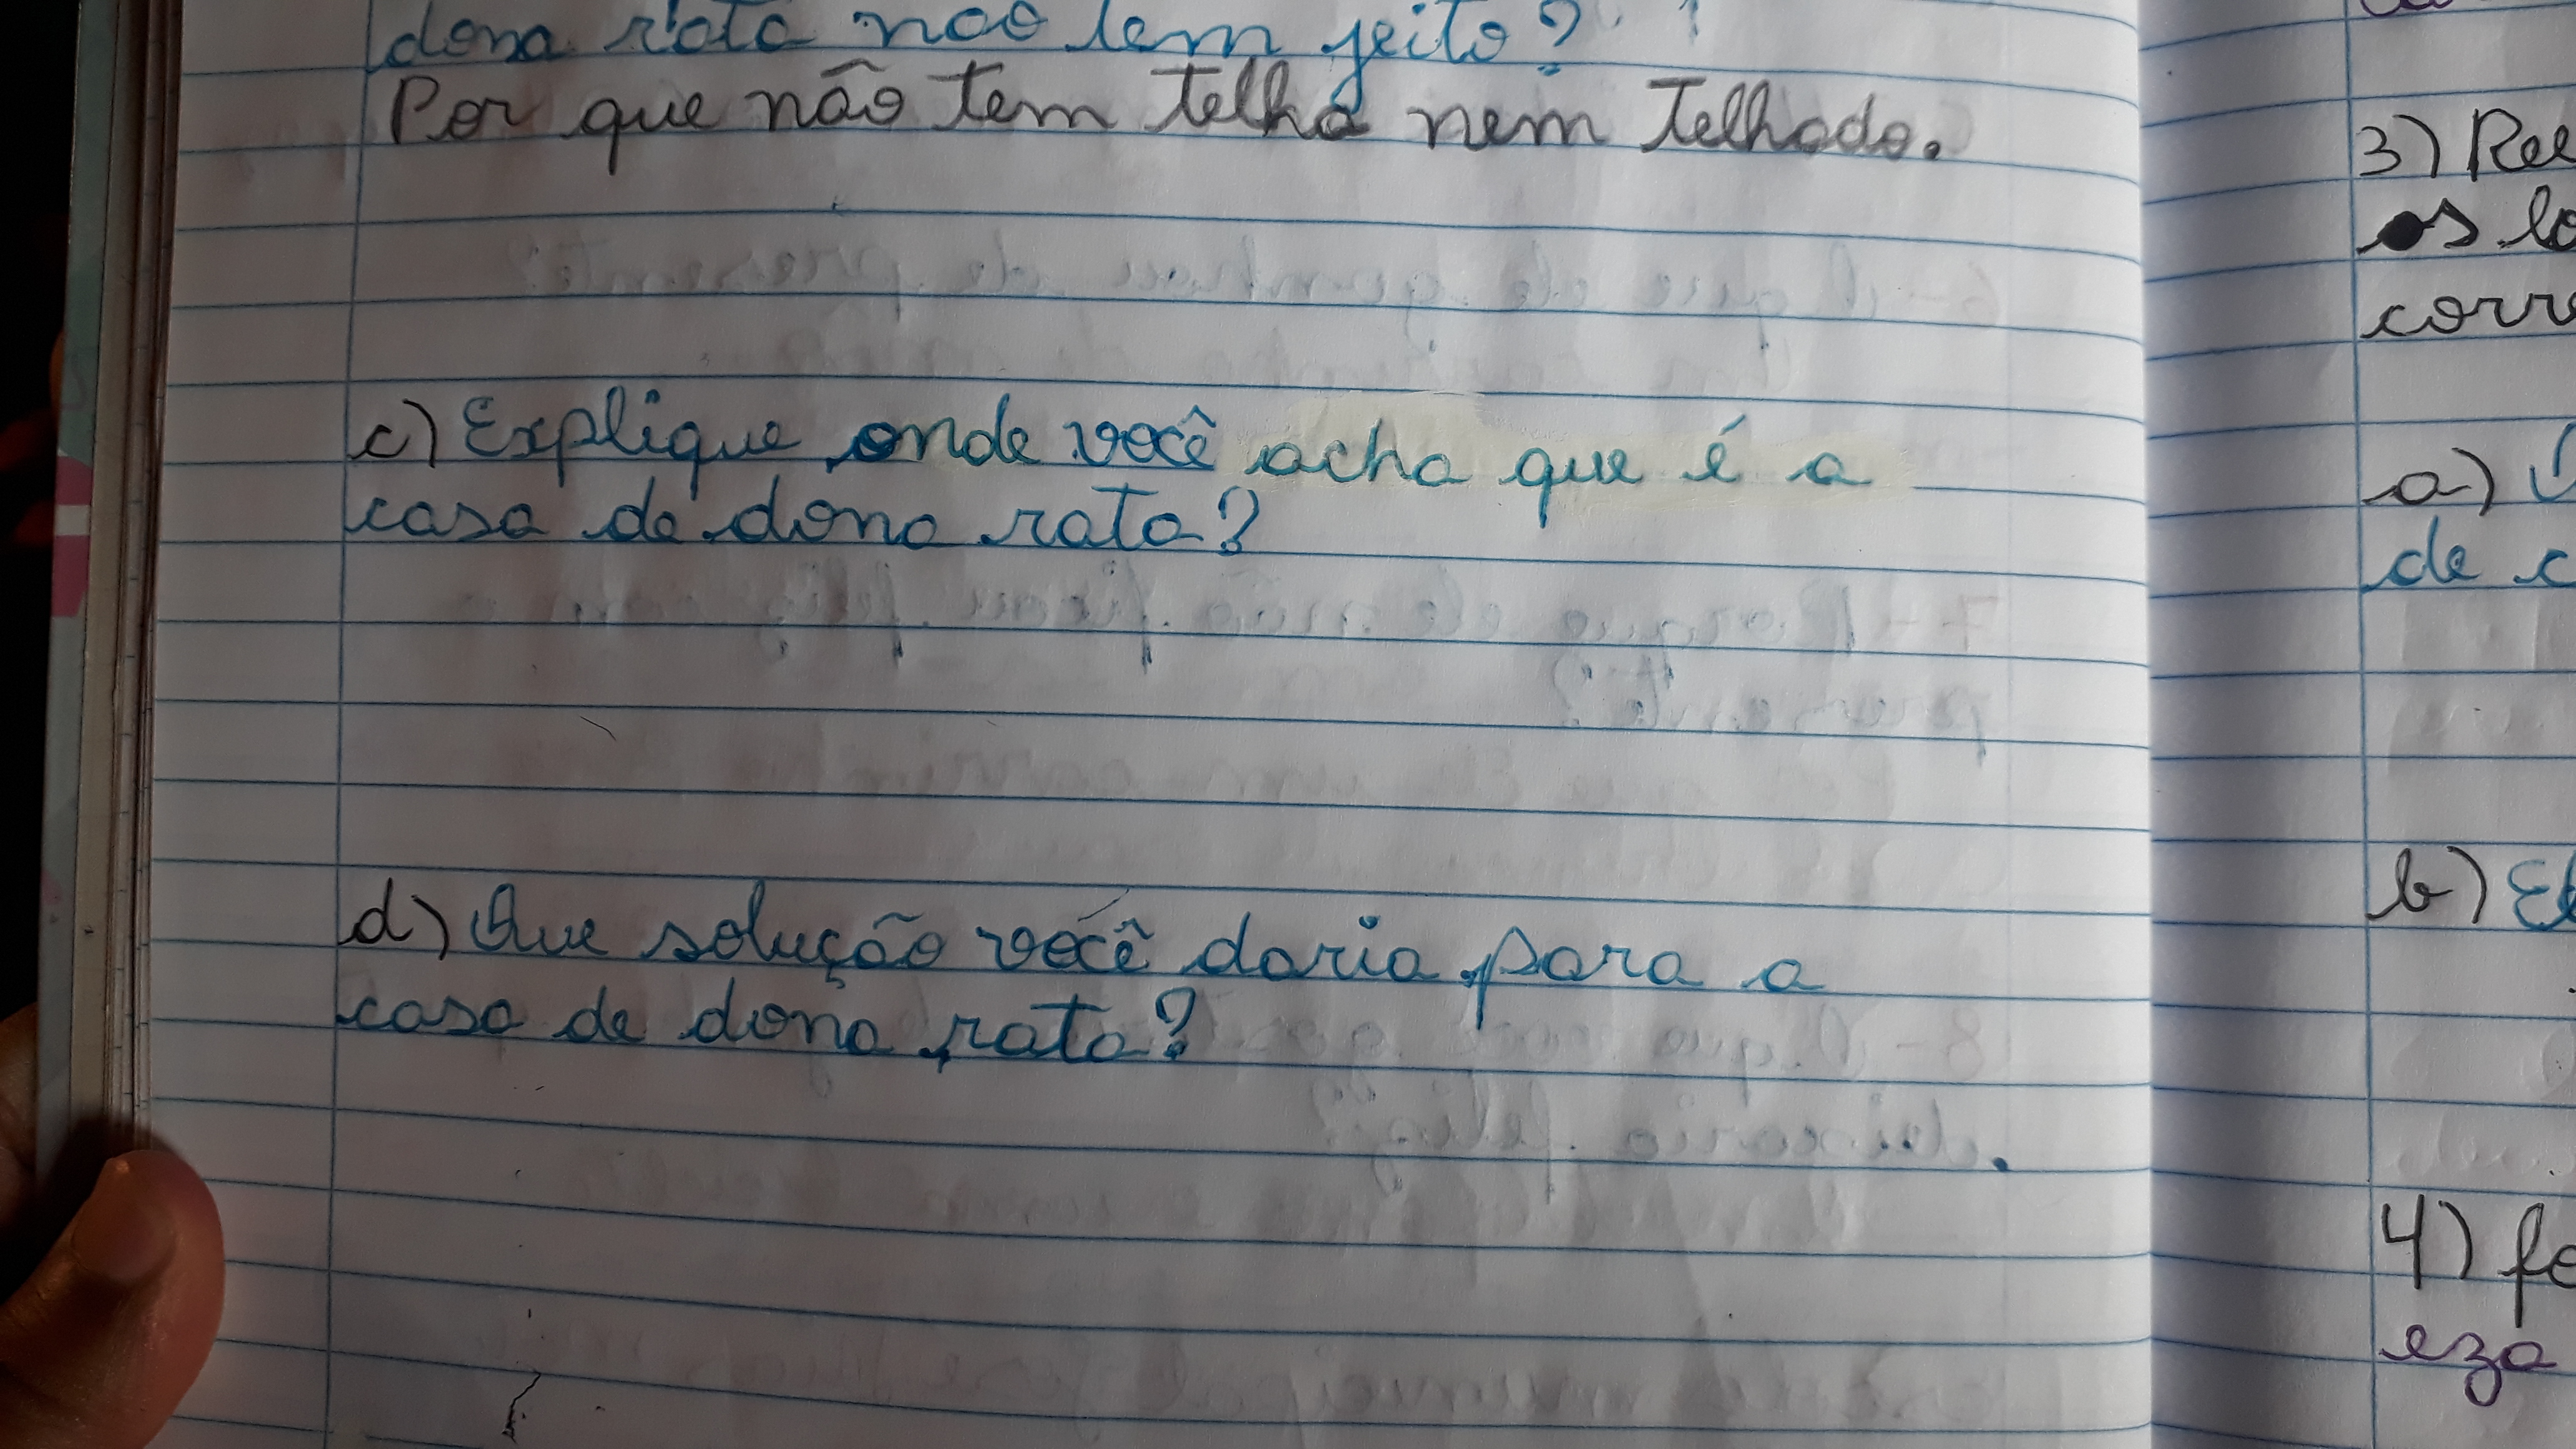 dona rata não tem jeito?
Por que não tem telha nem telhado.
c) Explique onde você acha que é a
casa de dona rata?
d) Que solução você daria para a
casa de dona rata?
3) Ree
os
corr
a)
de c
b) E
4)